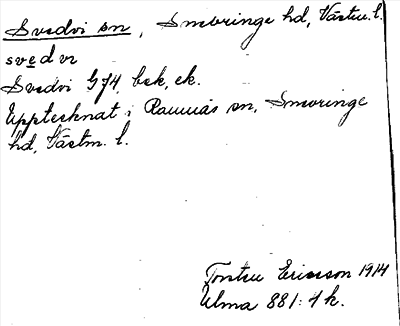 Svedvi sn, Snevringe hd, Västm. l.
svedvı
Svedvi G 74, bek, ek.
Upptecknat i Ramnäs sn, Snevringe
hd, Västm. l.
Torsten Ericsson 1914
Ulma 881:4 k.